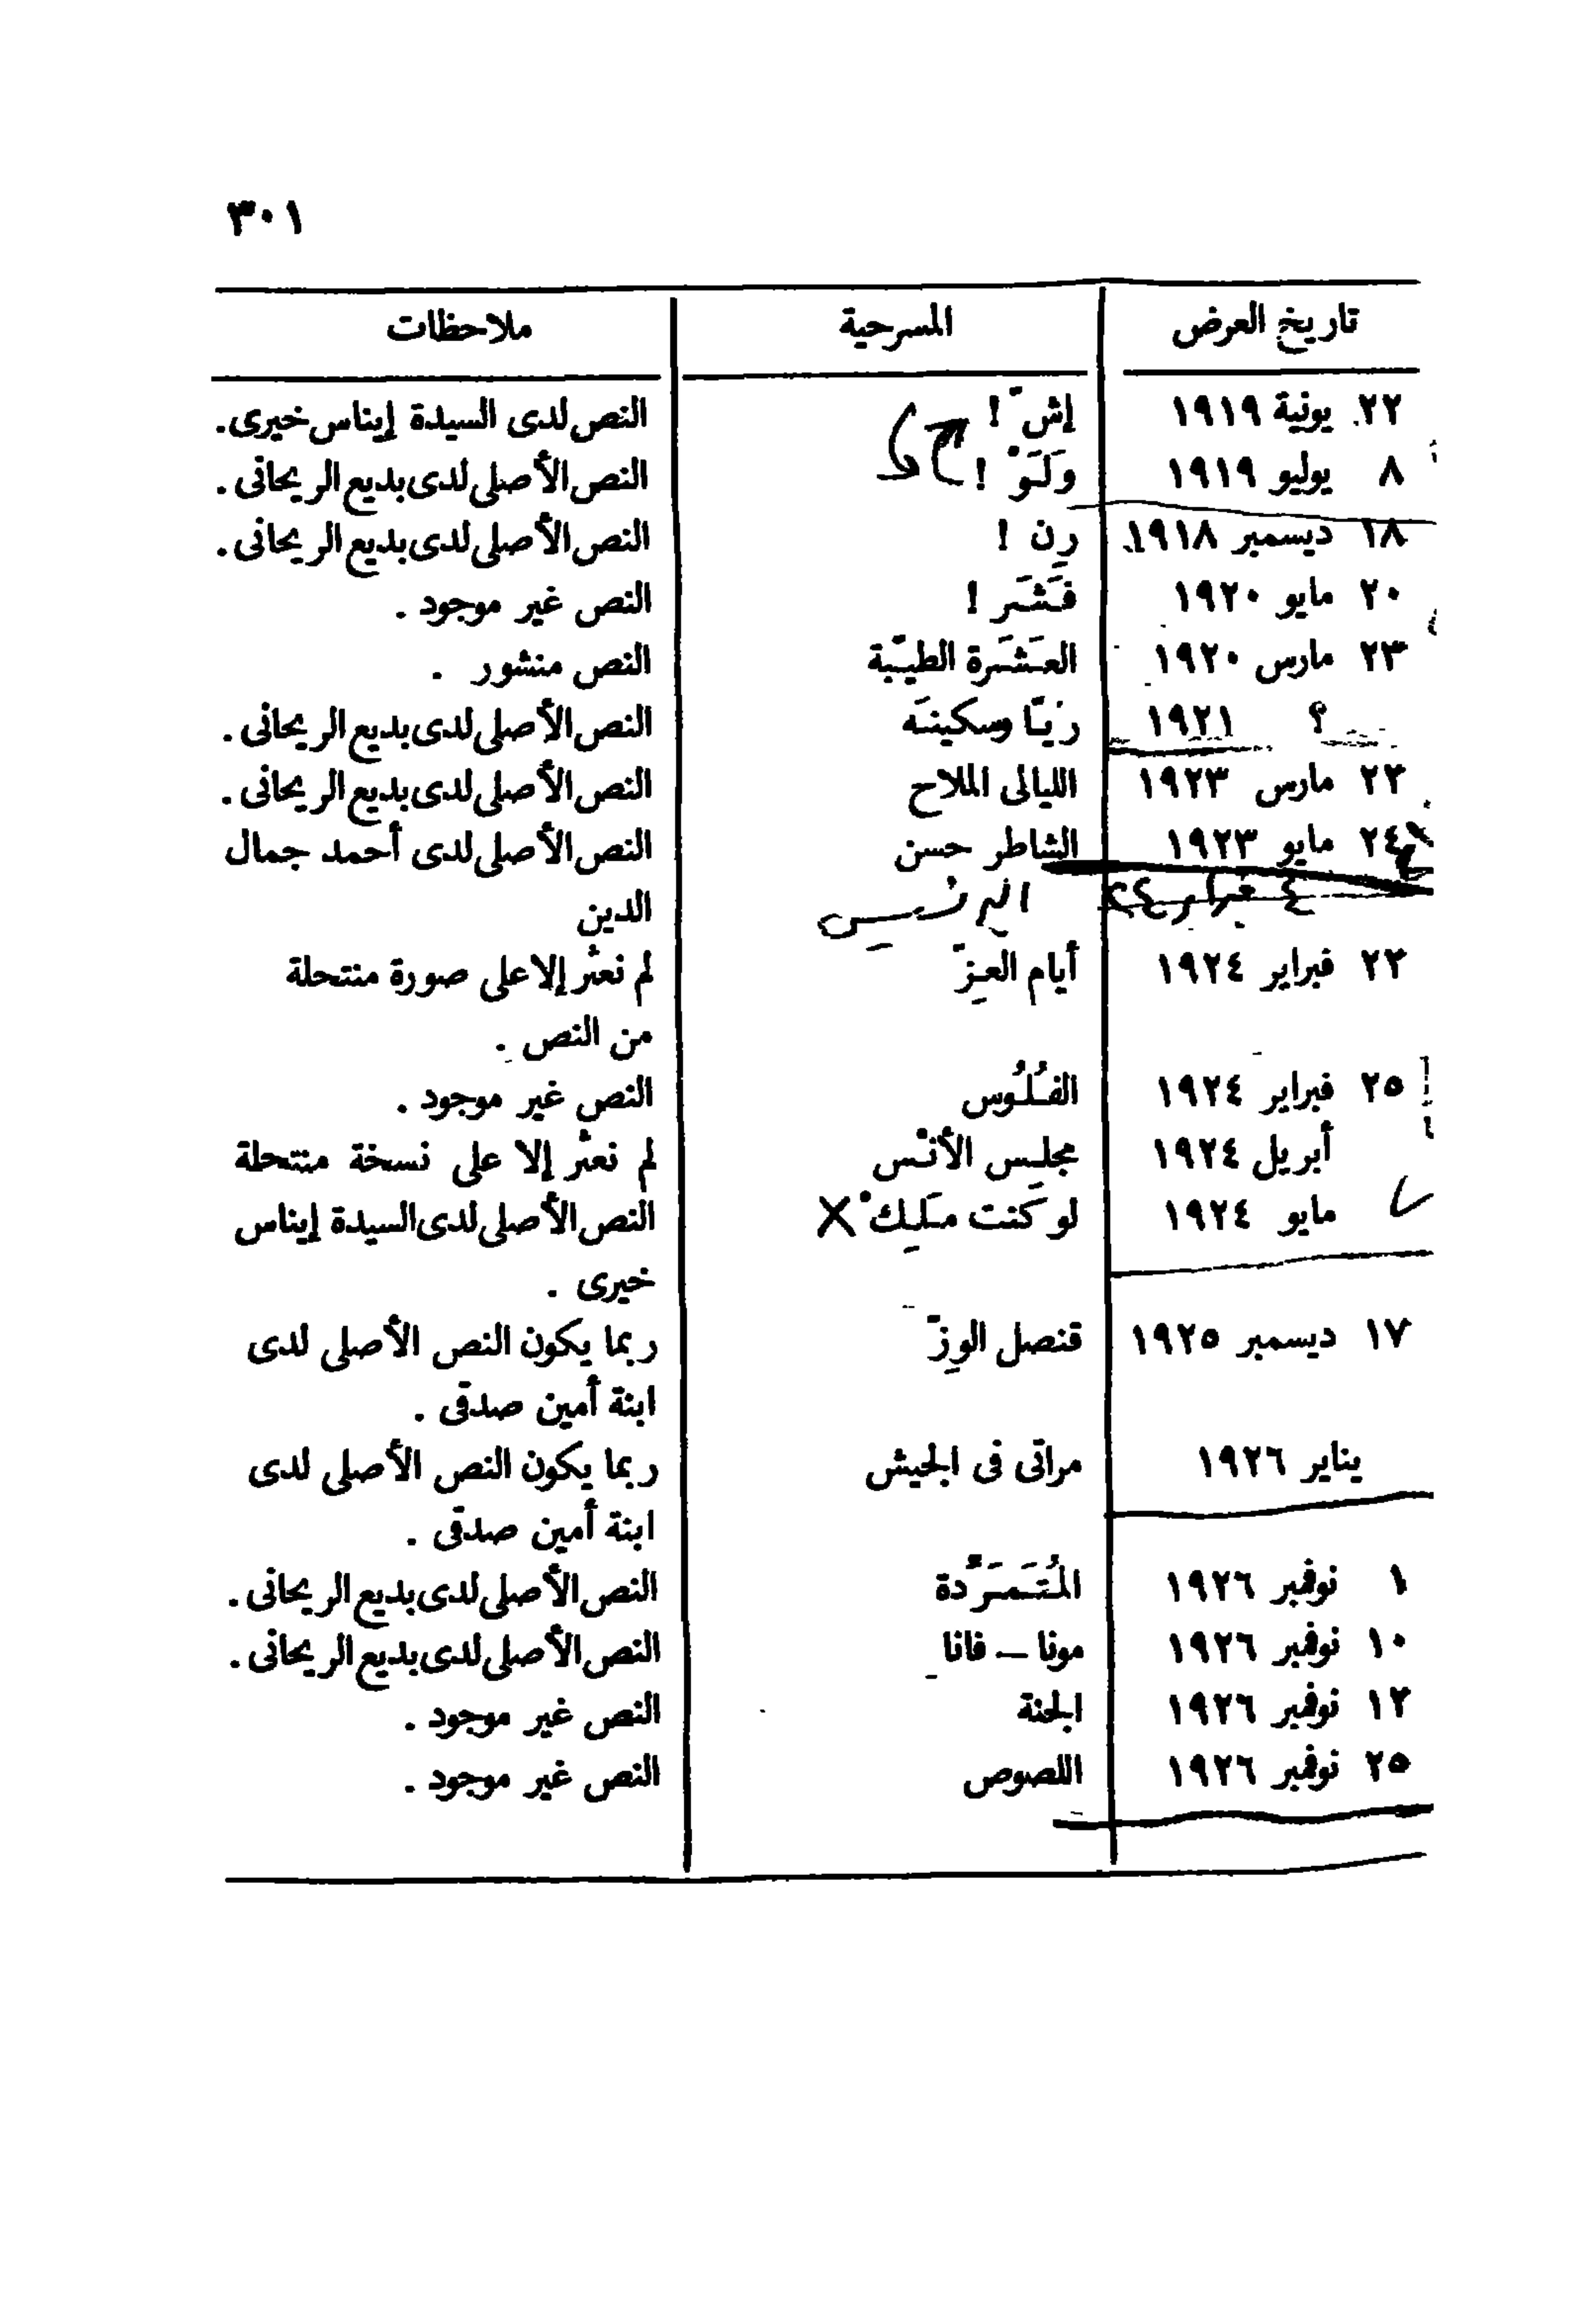 ٣٠١
تاريخ العرض المسرحية ملاحظات
٢٢ يونية ١٩١٩ إشّ ! النص لدى السيدة إيناس خيرى.
٨ يوليو ١٩١٩ وَلَوْ ! النص الأصلى لدى بديع الريحانى .
١٨ ديسمبر ١٩١٨ رِن ! النص الأصلى لدى بديع الريحانى .
٢٠ مايو ١٩٢٠ فَشَر ! النص غير موجود .
٢٣ مارس ١٩٢٠ العَشَرة الطيّبة النص منشور .
؟ ١٩٢١ ريّا وسكينَه النص الأصلى لدى بديع الريحانى .
٢٢ مارس ١٩٢٣ الليالى الملاح النص الأصلى لدى بديع الريحانى .
٢٤ مايو ١٩٢٣ الشاطر حسن النص الأصلى لدى أحمد جمال
٤ فبراير ٢٤ البرنسيس الدين
٢٢ فبراير ١٩٢٤ أيام العِزّ لم نعثر إلا على صورة منتحلة
من النص .
٢٥ فبراير ١٩٢٤ الفُلُوس النص غير موجود .
أبريل ١٩٢٤ مجلِس الأنْس لم نعثر إلا على نسخة منتحلة
مايو ١٩٢٤ لو كنت مَلِيك النص الأصلى لدى السيدة إيناس
خيرى .
١٧ ديسمبر ١٩٢٥ قنصل الوِزّ ربما يكون النص الأصلى لدى
ابنة أمين صدقى .
يناير ١٩٢٦ مراتى فى الجيش ربما يكون النص الأصلى لدى
ابنة أمين صدقى .
١ نوفمبر ١٩٢٦ المُتَمَرِّدة النص الأصلى لدى بديع الريحانى .
١٠ نوفمبر ١٩٢٦ مونا – فانا النص الأصلى لدى بديع الريحانى .
١٢ نوفمبر ١٩٢٦ الجنة النص غير موجود .
٢٥ نوفمبر ١٩٢٦ اللصوص النص غير موجود .